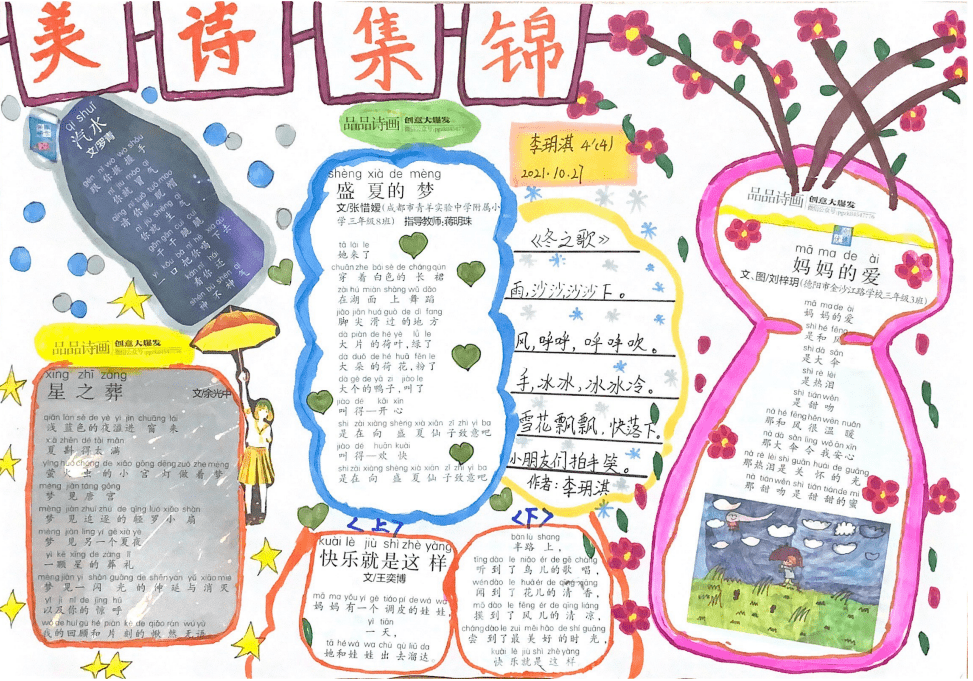 美诗集锦
qì shuǐ
汽水
文/罗青
gēn nǐ wò wò shǒu
跟你握握手
你就生气
品品诗画 创意大爆发
xīng zhī zàng
星之葬
文/余光中
qiǎn lán sè de yè yì jìn chuāng lái
浅蓝色的夜溢进窗来
xià zhēn dé tài mǎn
夏斟得太满
yíng huǒ chóng de xiǎo gōng dēng zuò zhe mèng
萤火虫的小宫灯做着梦
mèng jiàn táng gōng
梦见唐宫
mèng jiàn zhuī zhú de qīng luó xiǎo shàn
梦见追逐的轻罗小扇
mèng jiàn lìng yí gè xià yè
梦见另一个夏夜
yì kē xīng de zàng lǐ
一颗星的葬礼
mèng jiàn yì shǎn guāng de shēn yán yǔ xiāo miè
梦见一闪光的伸延与消灭
yǐ jí nǐ de jīng hū
以及你的惊呼
wǒ de huí gù hé piàn kè de qiǎo rán wú yǔ
我的回顾和片刻的愀然无语
品品诗画 创意大爆发
shèng xià de mèng
盛夏的梦
文/张惜媛(成都市青羊实验中学附属小
学三年级8班) 指导教师:蒋明珠
tā lái le
她来了
chuān zhe bái sè de cháng qún
穿着白色的长裙
zài hú miàn shàng wǔ dǎo
在湖面上舞蹈
jiǎo jiān huá guò de dì fang
脚尖滑过的地方
dà piàn de hé yè lǜ le
大片的荷叶,绿了
dà duǒ de hé huā fěn le
大朵的荷花,粉了
dà gè de yā zi jiào le
大个的鸭子,叫了
jiào dé kāi xīn
叫得一开心
shì zài xiàng shèng xià xiān zǐ zhì yì ba
是在向盛夏仙子致意吧
jiào dé huān kuài
叫得一欢快
shì zài xiàng shèng xià xiān zǐ zhì yì ba
是在向盛夏仙子致意吧
李玥淇 4'(4)
2021.10.27
《冬之歌》
雨,沙沙,沙沙下。
风,呼呼,呼呼吹。
手,冰冰,冰冰冷。
雪花飘飘,快落下。
小朋友们拍手笑。
作者:李玥淇
<上>
kuài lè jiù shì zhè yàng
快乐就是这样
文/王奕博
mā ma yǒu yí gè tiáo pí de wá wa
妈妈有一个调皮的娃娃,
yì tiān
一天,
tā hé wá wa chū qù liū da
她和娃娃出去溜达。
<下>
bàn lù shang
半路上,
tīng dào le niǎo ér de gē chàng
听到了鸟儿的歌唱,
wén dào le huā ér de qīng xiāng
闻到了花儿的清香,
mō dào le fēng ér de qīng liáng
摸到了风儿的清凉,
cháng dào le zuì měi hǎo de shí guāng
尝到了最美好的时光,
kuài lè jiù shì zhè yàng
快乐就是这样
品品诗画 创意大爆发
mā ma de ài
妈妈的爱
文、图/刘梓玥(德阳市金沙江路学校三年级3班)
mā ma de ài
妈妈的爱
shì hé fēng
是和风
shì dà sǎn
是大伞
shì rè lèi
是热泪
shì tián wěn
是甜吻
nà hé fēng hěn wēn nuǎn
那和风很温暖
nà dà sǎn lìng wǒ ān xīn
那大伞令我安心
nà rè lèi shì guān huái de guāng
那热泪是关怀的光
nà tián wěn shì tián tián de mì
那甜吻是甜甜的蜜